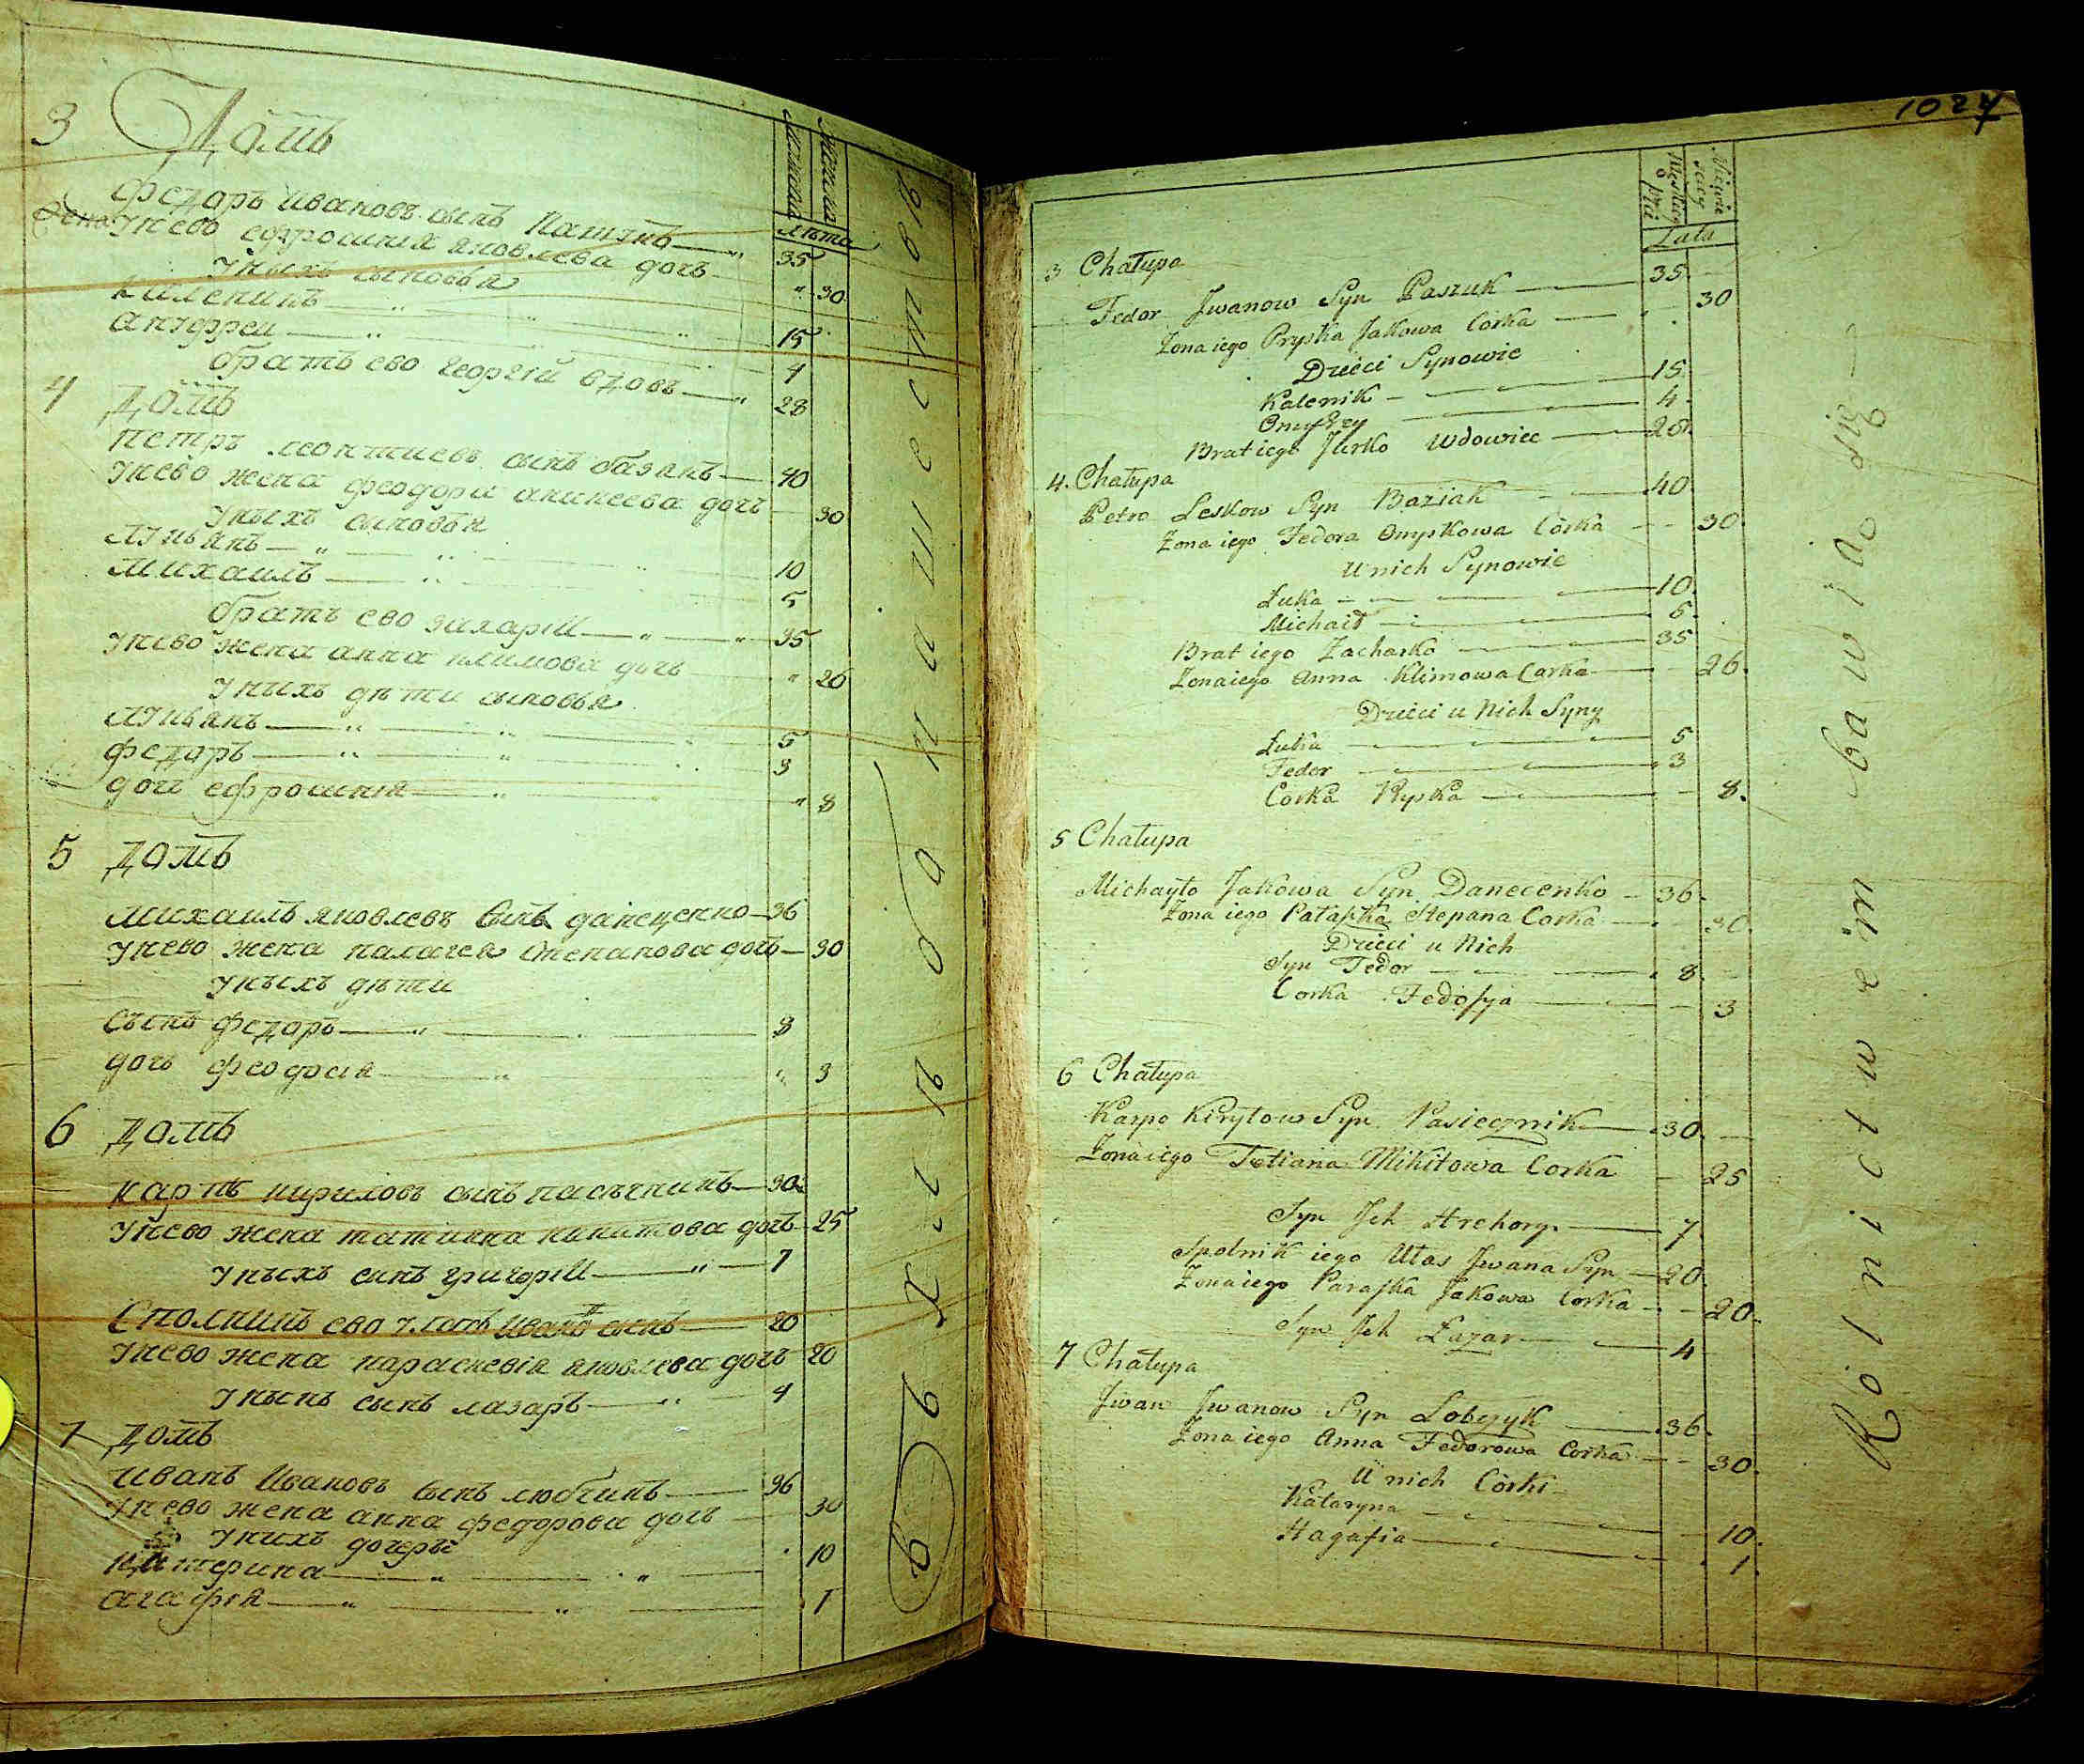 3 Домъ
Федоръ Ивановъ сынъ 35
Унево жена ефросиния яковлева дочъ 30
Уныхъ сыновья
15
Онуфреи 4
братъ ево Георгій вдовъ 28
4 Домъ
Петръ леонтиевъ сынъ базянъ 40
Унево жена феодора дочъ 30
Уныхъ сыновья
Лукьянъ 10
Михаилъ 5
братъ ево захарій 35
Унево жена анна климова дочъ 26
Уныхъ дѣти сыновья
Лукьянъ 5
федоръ 3
дочъ ефросинія 8
5 Домъ
Михаилъ яковлевъ сынъ данеценко 36
Унево жена палагея степанова дочъ 30
Уныхъ дѣти
сынъ федоръ 8
дочъ феодосія 3
6 Домъ
карпъ кириловъ сынъ пасѣчникъ 30
Унево жена татияна никитова дочъ 25
Уныхъ сынъ григорій 7
Сполникъ ево уласъ ивановъ сынъ 20
Унево жена параскевія яковлева дочъ 20
Уныхъ сынъ лазаръ 4
7 Домъ
Иванъ Ивановъ сынъ любчикъ 36
Унево жена анна федорова дочъ 30
Унихъ дочеры
Катерина 10
агафія 1
Мужеска Женска
лѣта
Въ хлѣбопашествѣ
1027
Męskiey płci
Lata
3 Chałupa
Fedor Jwanow Syn Paszuk 35
Zona iego Pryśka Jakowa Corka 30
Dzieci Synowie
Kalenik 15
Onufrey 4
Brat iego Jurko Wdowiec 28
4. Chałupa
Petro Leskow Syn Baziak 40
Zona iego Fedora Onyskowa Córka 30
U nich Synowie
Łuka 10
Michaił 5
Brat iego Zacharko 35
Zona iego Anna Klimowa Corka 26
Dzieci u Nich Syny
Łuka 5
Fedor 3
Corka Pryska 8
5 Chałupa
Michayło Jakowa Syn Danecenko 36
Zona iego Pałaszka Stepana Corka 30
Dzieci u Nich
Syn Fedor 8
Corka Fedosya 3
6 Chałupa
Karpo Kiryłow Syn Pasiecznik 30
Zona iego Tetiana Mikitowa Corka 25
Syn Jch Hrehory 7
Spolnik iego Ułas Jwana Syn 20
Zona iego Paraska Jakowa Corka 20
Syn Jch Łazar 4
7 Chałupa
Jwan Jwanow Syn Lobczyk 36
Zona iego Anna Fedorowa Corka 30
U nich Córki
Kataryna 10
Hagafia 1
Rolnictwem bawiło się